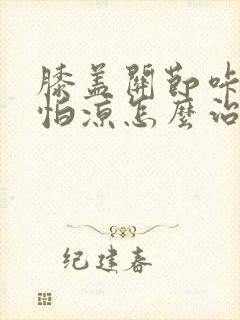 膝盖關節咔
怕凉怎麼治
纪建春